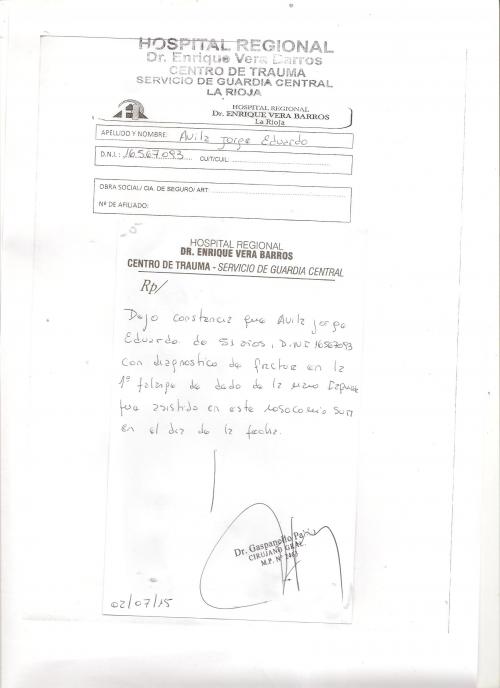 HOSPITAL REGIONAL
Dr. Enrique Vera Barros
CENTRO DE TRAUMA
SERVICIO DE GUARDIA CENTRAL
LA RIOJA
HOSPITAL REGIONAL
Dr. ENRIQUE VERA BARROS
La Rioja
APELLIDO Y NOMBRE: Avila Jorge Eduardo
D.N.I.: 16.567.093 CUIT/CUIL:
OBRA SOCIAL/ CIA. DE SEGURO/ ART:
Nº DE AFILIADO:
HOSPITAL REGIONAL
DR. ENRIQUE VERA BARROS
CENTRO DE TRAUMA - SERVICIO DE GUARDIA CENTRAL
Rp/
Dejo constancia que Avila Jorge
Eduardo de 51 años, D.N.I 16567093
con diagnostico de fractura en la
1º falange de dedo de la mano
fue asistido en este nosocomio
en el dia de la fecha.
Dr. Gaspanello
CIRUJANO GRAL.
M.P. Nº
02/07/15